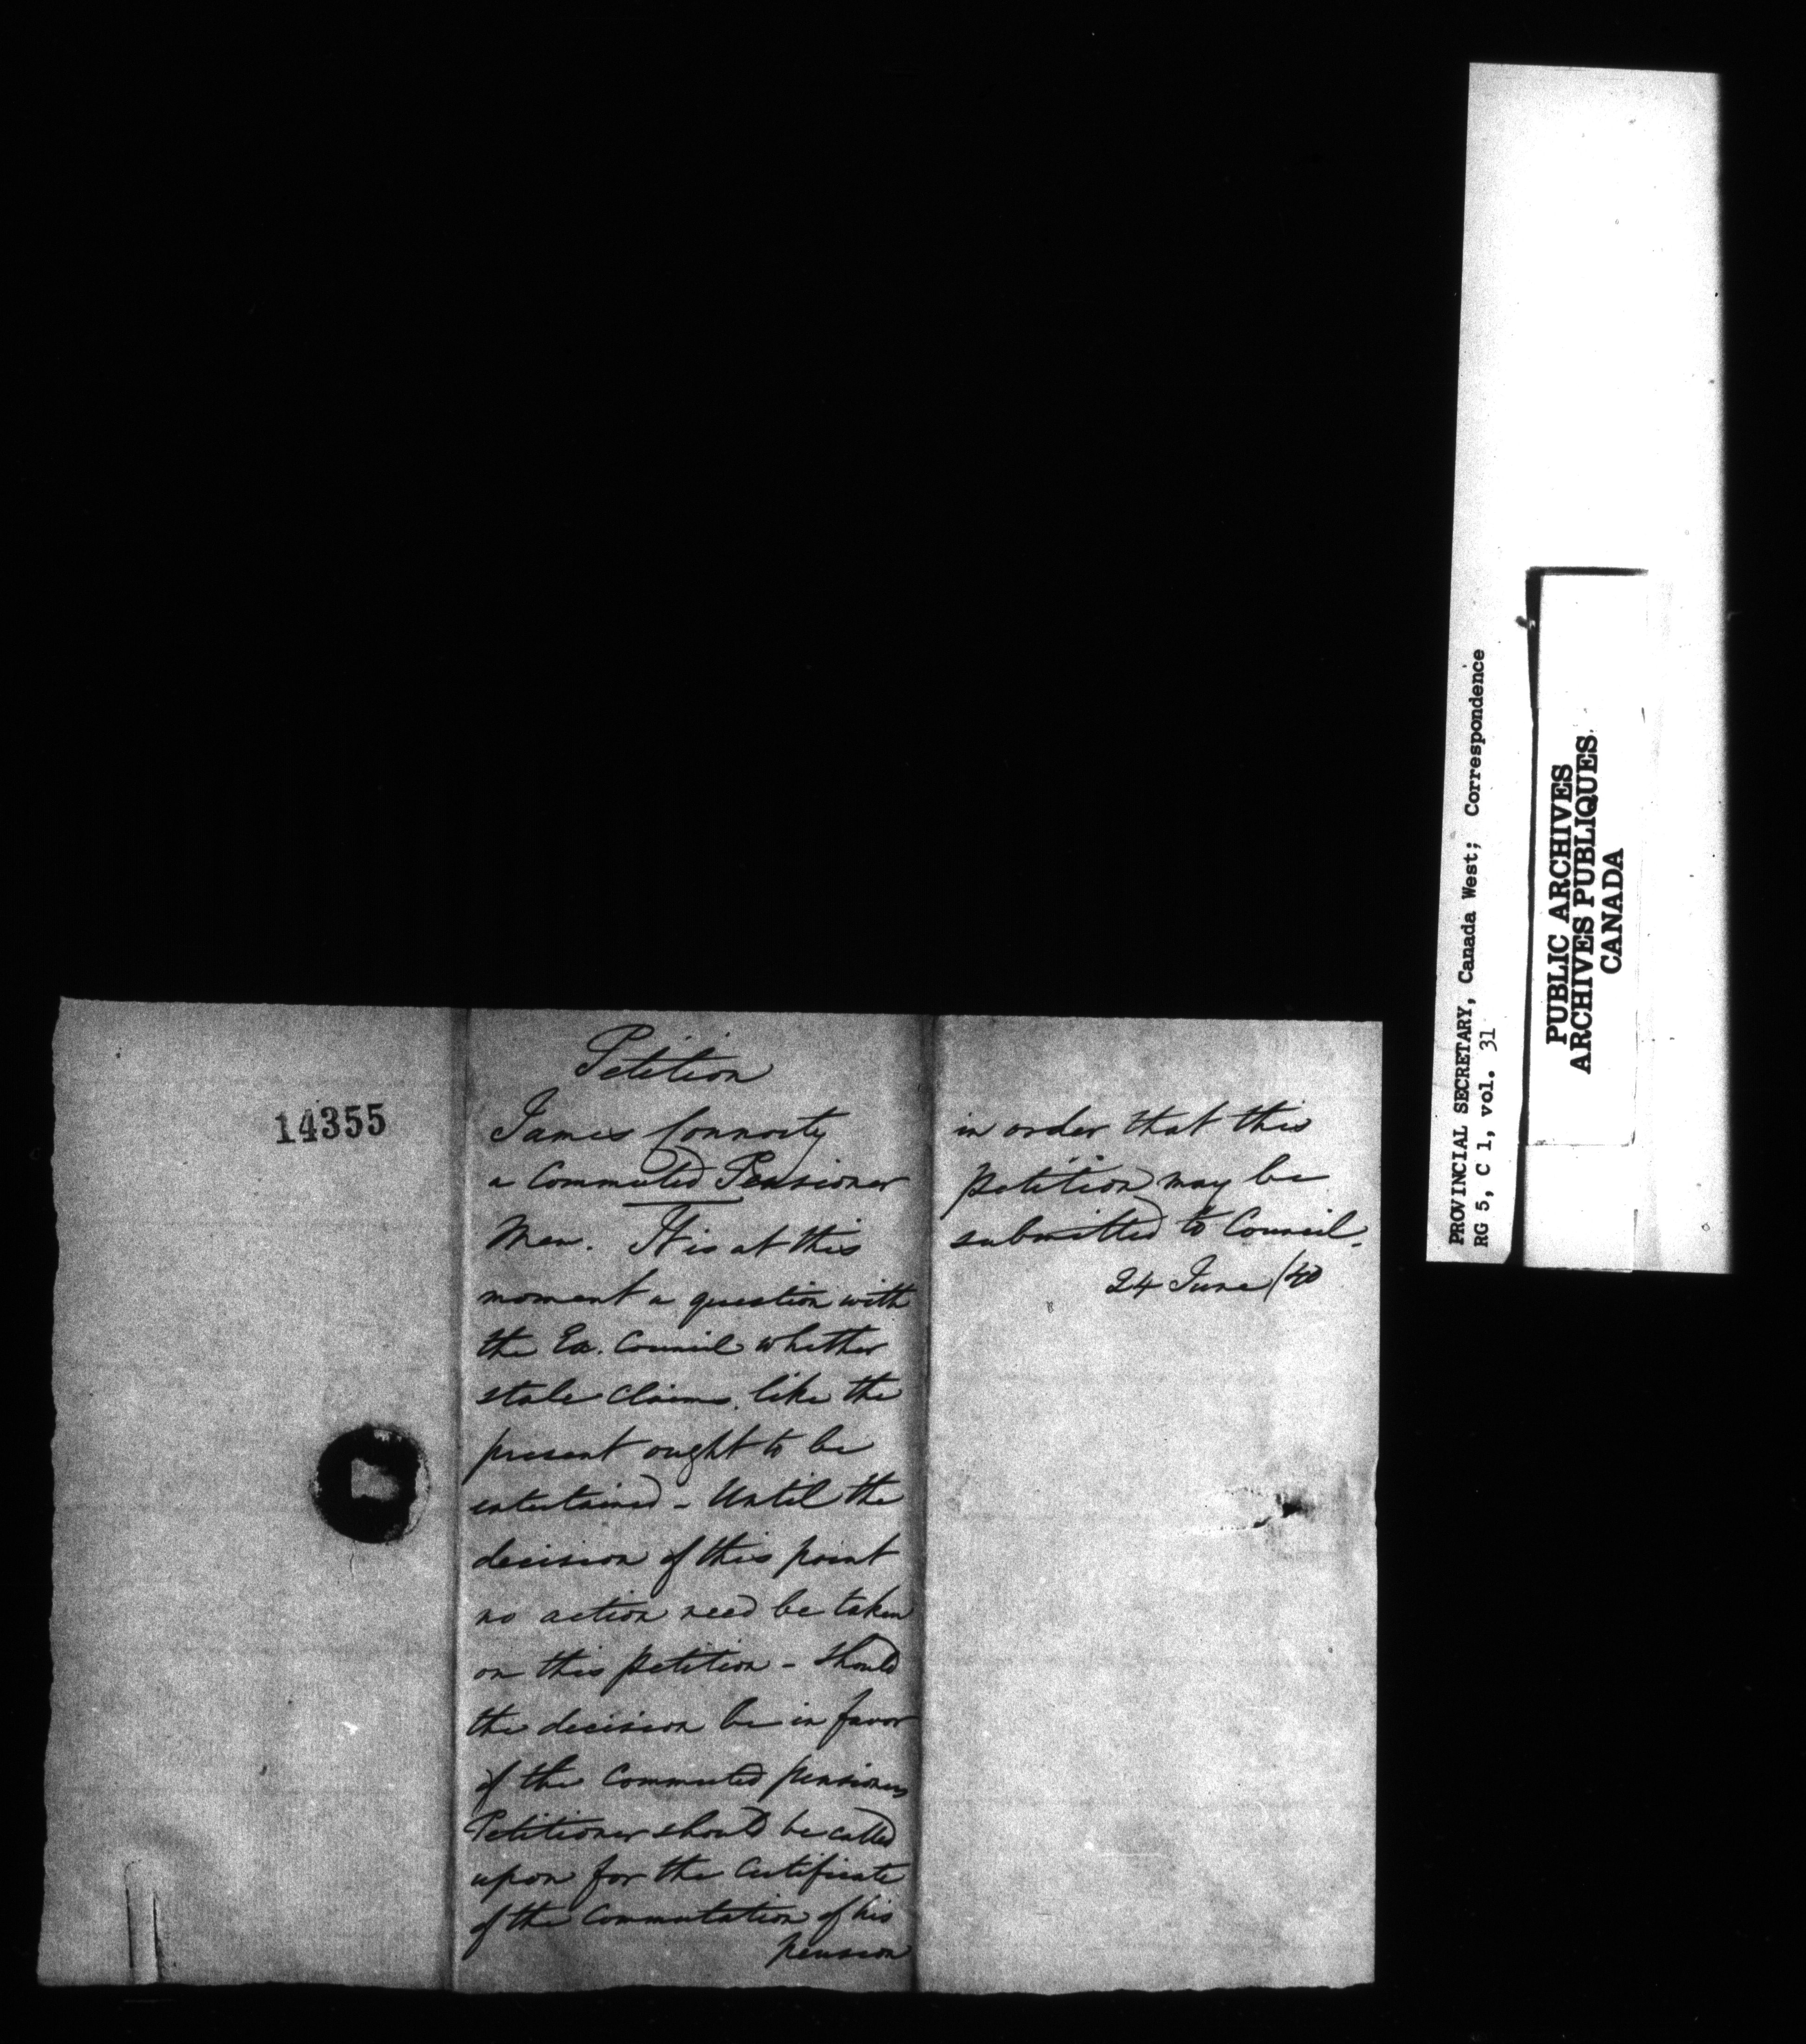 14355
Petition
James Connorty
a Commuted Pensioner
Mem. It is at this
moment a question with
the Ex. Council whether
stale claims like the
present ought to be
entertained - Until the
decision of this point
no action need be taken
on this petition - Should
the decision be in favor
of the Commuted pensioners
Petitioner should be called
upon for the Certificate
of the Commutation of his
pension
in order that this
petition may be
submitted to Council.
24 June /40
PROVINCIAL SECRETARY, Canada West; Correspondence
RG 5, C 1, vol. 31
PUBLIC ARCHIVES
ARCHIVES PUBLIQUES
CANADA